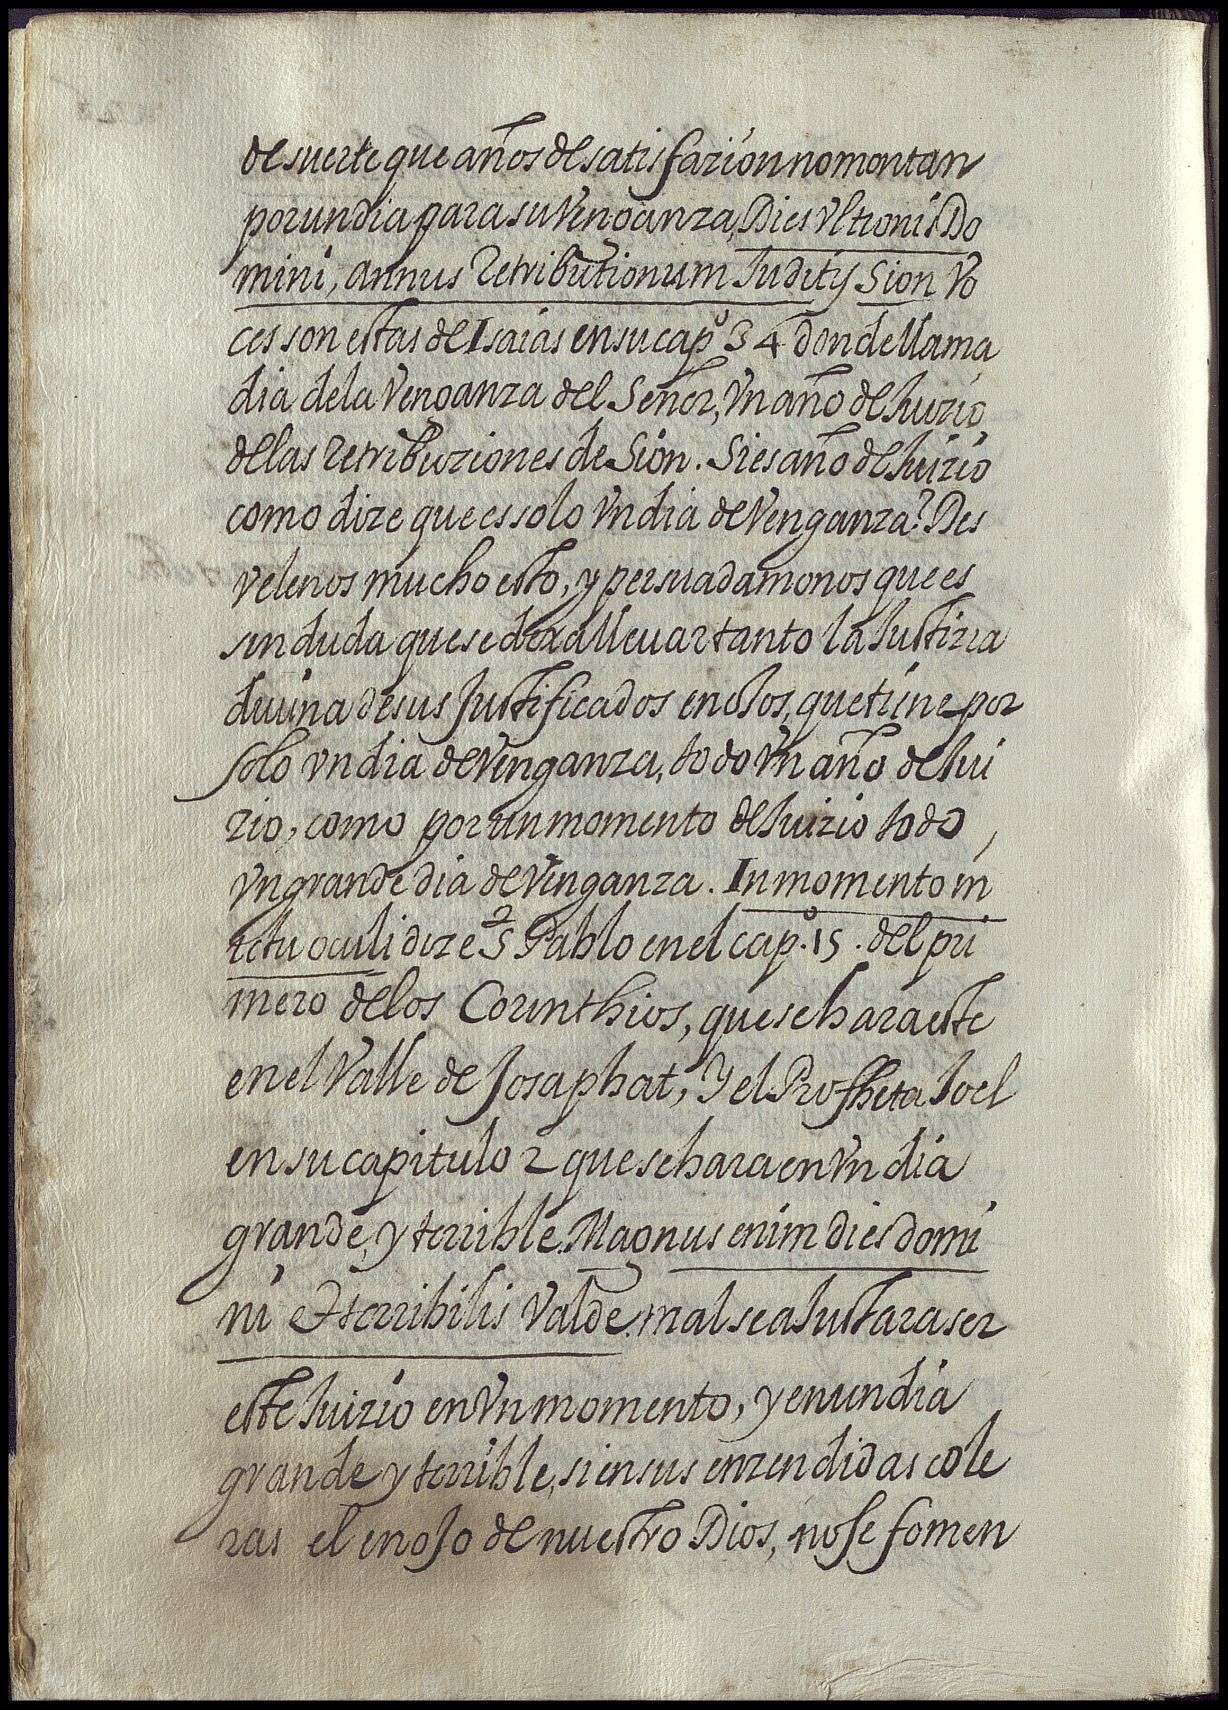 de suerte que años de satisfazion no montan
por un dia para su Venganza, Dies Vltionis Do
mini, annus Retributionum Juditÿ Sion Vo
ces son estas de Isaias en su capº 34 donde llama
dia de la Venganza del Señor, Vn año de Juizio
de las Retribuziones de Sion. Si es año de Juizio
como dize que es solo Vn dia de Venganza? Des
velenos mucho esto, y persuadamonos que es
sin duda que se dexa lleuar tanto la Justizia
diuina de sus Justificados enojos, que tiene por
solo vn dia de Venganza, todo Vn año de Jui
zio, como por un momento de Juizio todo
Vn grande dia de Venganza. In momento in
ictu oculi dize S Pablo en el capº. 15. del pri
mero de los Corinthios, que se hara este
en el Valle de Josaphat, Y el Propheta Joel
en su capitulo 2 que se hara en Vn dia
grande, y terrible. Magnus enim dies domi
ni et terribilis Valde. mal se aJustara ser
este Juizio en Vn momento, y en un dia
grande y terrible, si en sus enzendidas cole
ras el enojo de nuestro Dios, no se fomen